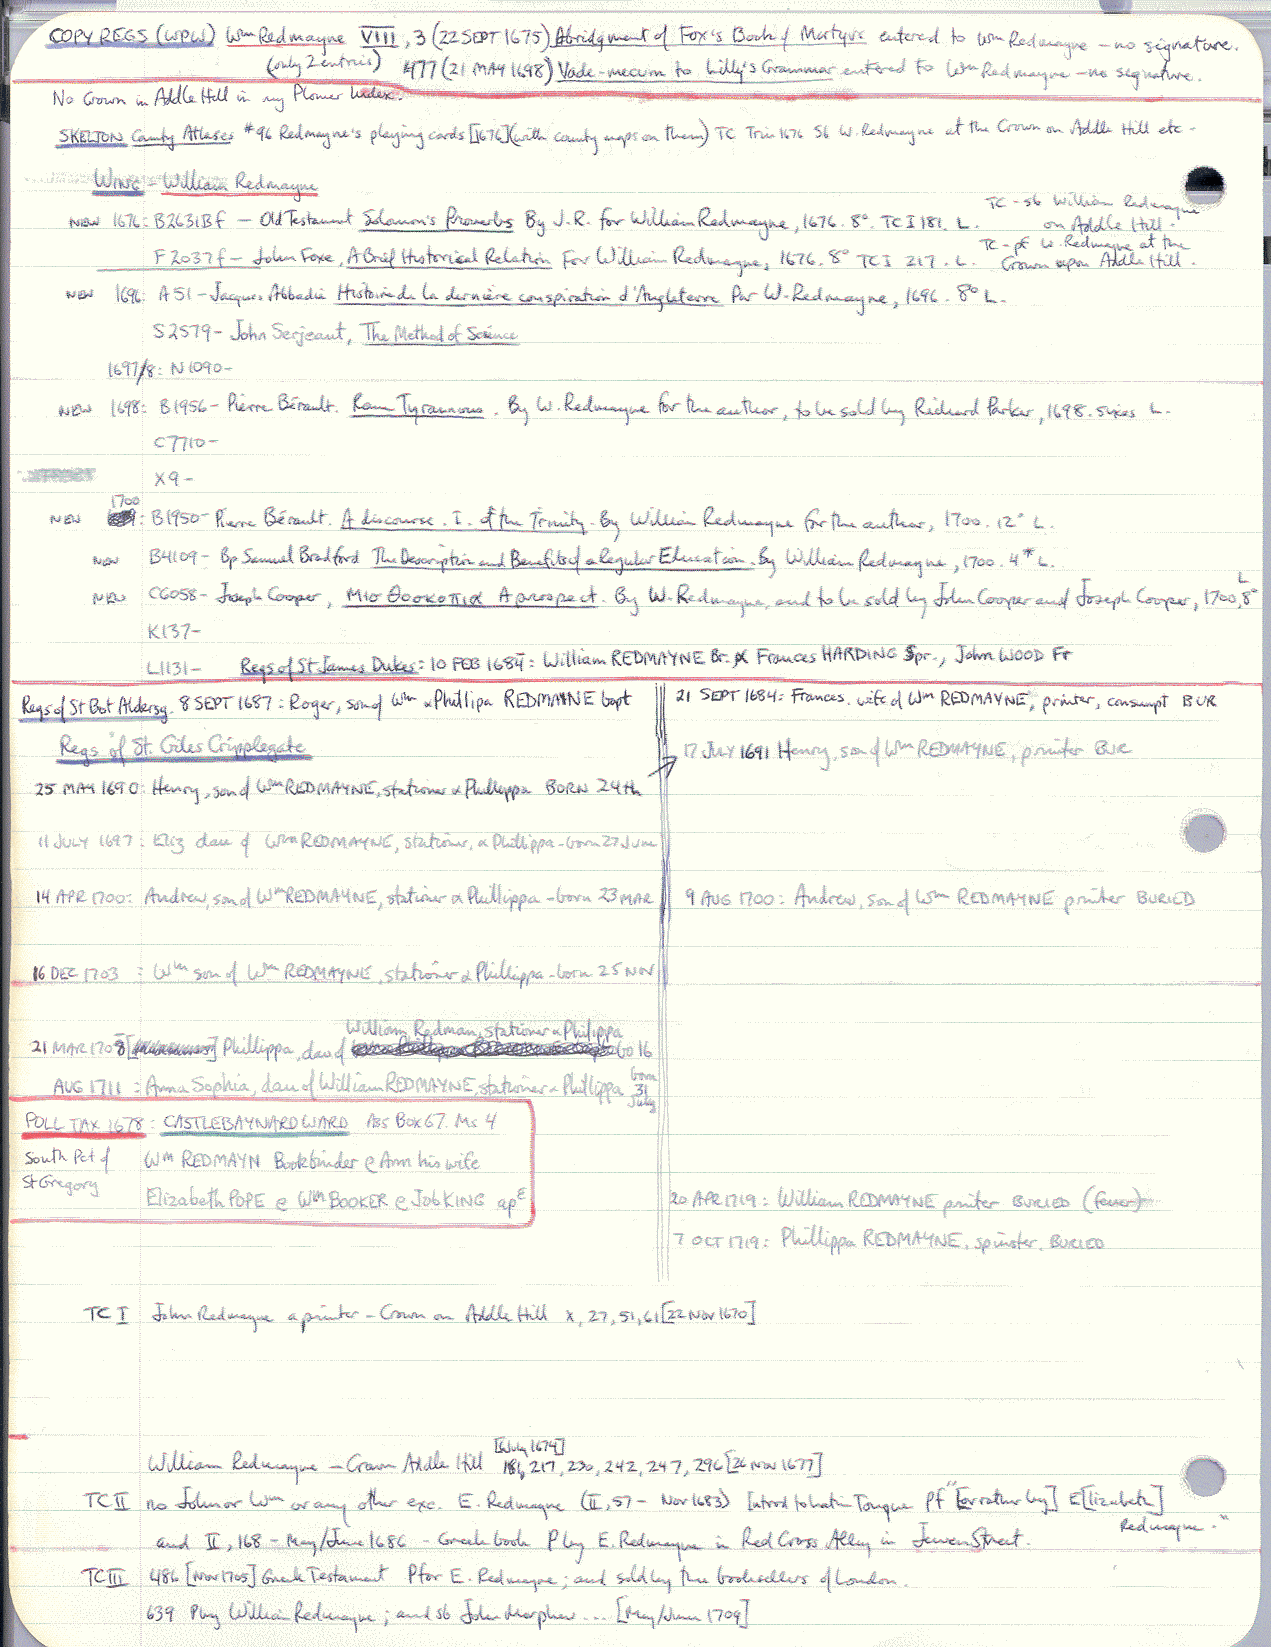 COPY REGS (WPW) Wm Redmayne VIII, 3 (22 SEPT 1675) Abridgment of Fox's Book of Martyrs entered to Wm Redmayne - no signature.
(only 2 entries) 477 (21 MAY 1698) Vade-mecum to Lilly's Grammar entered to Wm Redmayne - no signature.
No Crown in Addle Hill in my Plomer Index.
SKELTON County Atlases #96 Redmayne's playing cards [1676] (with county maps on them) TC Trin 1676 Sb W. Redmayne at the Crown on Addle Hill etc -
WING - William Redmayne
TC - sb William Redmayne on Addle Hill.
NEW 1676: B2631Bf - Old Testament Solomon's Proverbs By J.R. for William Redmayne, 1676. 8°. TC I 181. L.
TC - pf W. Redmayne at the Crown upon Addle Hill.
F2037f - John Foxe, A Brief Historical Relation For William Redmayne, 1676. 8° TC I 217. L.
NEW 1696: A51 - Jacques Abbadie Histoire de la dernière conspiration d'Angleterre Par W. Redmayne, 1696. 8° L.
S2579 - John Serjeant, The Method of Science
1697/8: N1090 -
NEW 1698: B1956 - Pierre Bérault. Rome Tyrannous. By W. Redmayne for the author, to be sold by Richard Parker, 1698. sixes L.
C7710 -
X9 -
1700
NEW : B1950 - Pierre Bérault. A discourse. I. of the Trinity. By William Redmayne for the author, 1700. 12° L.
NEW B4109 - Bp Samuel Bradford The Description and Benefits of a Regular Education. By William Redmayne, 1700. 4° L.
NEW C6058 - Joseph Cooper, Μισθοσκοπια A prospect. By W. Redmayne, and to be sold by John Cooper and Joseph Cooper, 1700, 8° L
K137 -
L1131 - Regs of St James Dukes: 10 FEB 1684: William REDMAYNE Br. & Frances HARDING Spr., John WOOD Fr
Regs of St Bot Aldersg. 8 SEPT 1687: Roger, son of Wm & Phillipa REDMAYNE bapt
21 SEPT 1684: Frances. wife of Wm REDMAYNE, printer, consumpt BUR
Regs of St. Giles Cripplegate
17 JULY 1691 Henry, son of Wm REDMAYNE, printer BUR
25 MAY 1690: Henry, son of Wm REDMAYNE, stationer & Phillippa BORN 24th
11 JULY 1697: Eliz dau of Wm REDMAYNE, stationer, & Phillippa - born 27 June
14 APR 1700: Andrew, son of Wm REDMAYNE, stationer & Phillippa - born 23 MAR
9 AUG 1700: Andrew, son of Wm REDMAYNE printer BURIED
16 DEC 1703: Wm son of Wm REDMAYNE, stationer & Phillippa - born 25 NOV
William Redman, stationer & Philippa
21 MAR 1708 Phillippa, dau of bo 16
AUG 1711: Anna Sophia, dau of William REDMAYNE, stationer & Phillippa born 31 July
POLL TAX 1678: CASTLEBAYNARD WARD Ass Box 67. Ms 4
South Pct of St Gregory Wm REDMAYN Bookbinder @ Ann his wife
Elizabeth POPE @ Wm BOOKER @ Job KING ap
20 APR 1719: William REDMAYNE printer BURIED (fever)
7 OCT 1719: Phillippa REDMAYNE, spinster. BURIED
TC I John Redmayne a printer - Crown on Addle Hill x, 27, 51, 61 [22 NOV 1670]
[6 July 1674]
William Redmayne - Crown Addle Hill 181, 217, 230, 242, 247, 296 [26 NOV 1677]
TC II no John or Wm or any other exc. E. Redmayne (II, 57 - Nov 1683) Introd to Latin Tongue Pf "[or rather by] E[lizabeth] Redmayne."
and II, 168 - May/June 1686 - Greek book P by E. Redmayne in Red Cross Alley in Jewen Street.
TC III 486 [Nov 1705] Greek Testament P for E. Redmayne; and sold by the booksellers of London.
639 P by William Redmayne; and sb John Morphew... [May/June 1709]